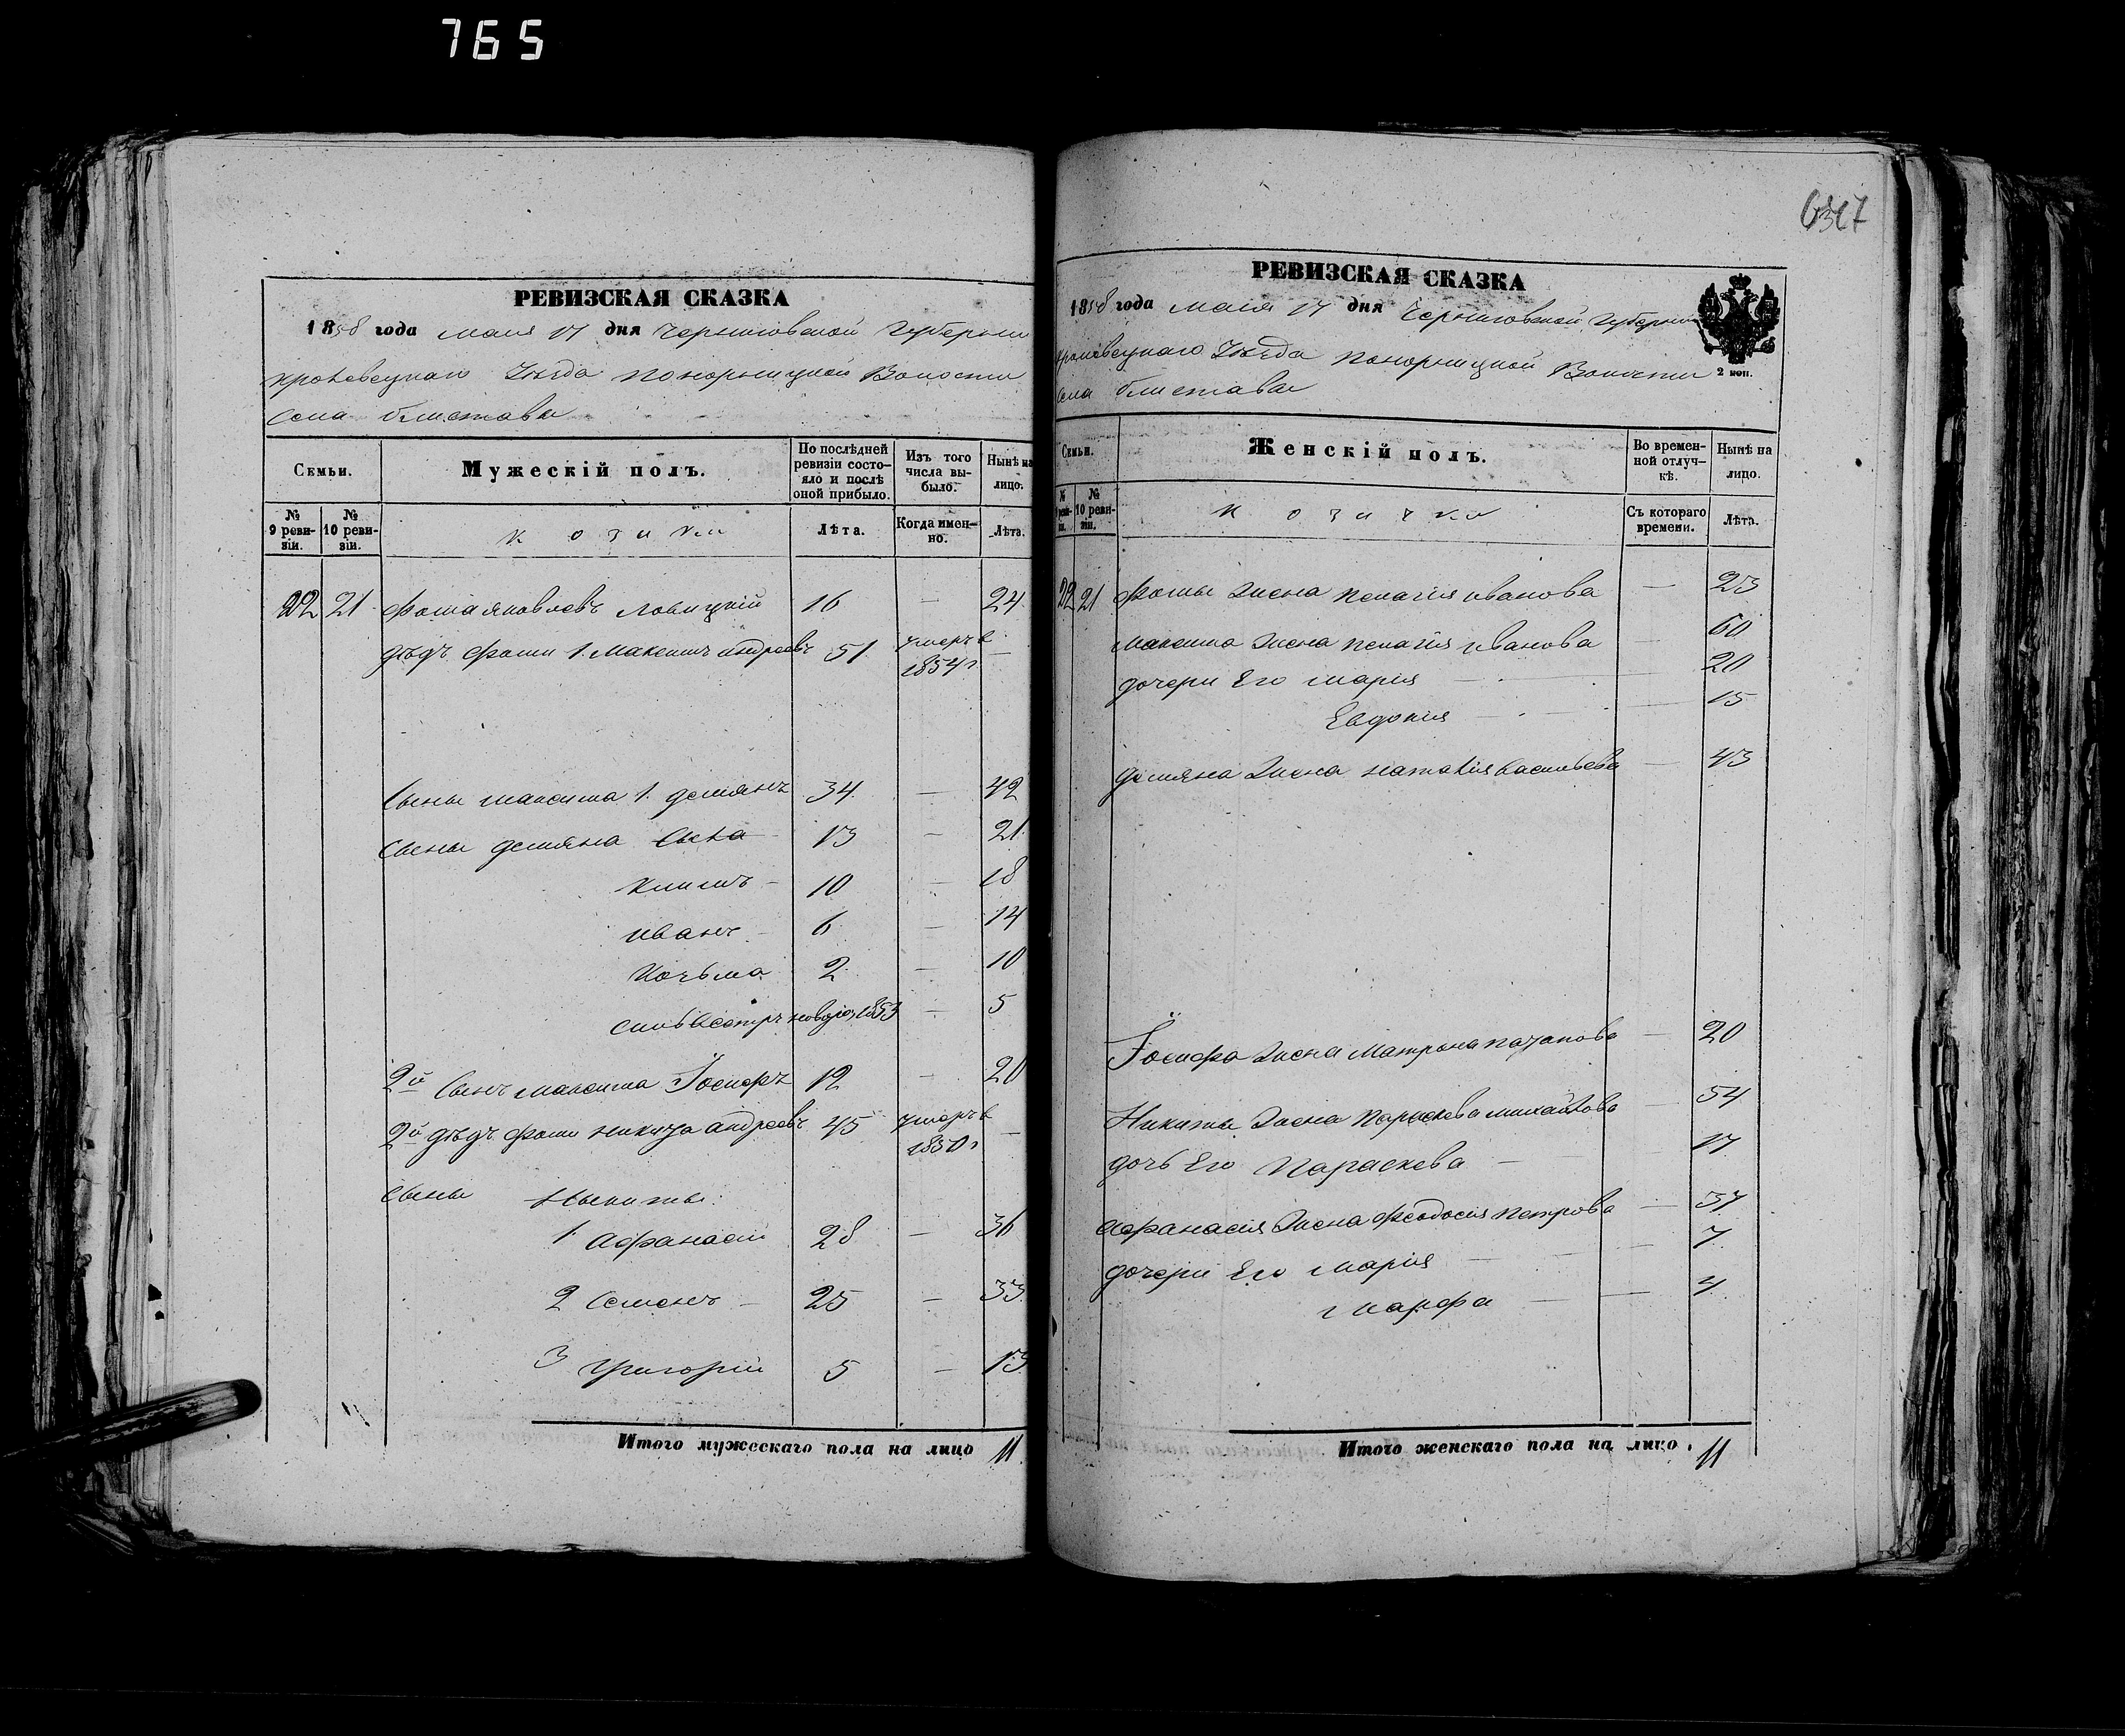 765
6347
РЕВИЗСКАЯ СКАЗКА
1858 года маия 17 дня Черниговской Губернии
кролевецкаго Уѣзда понорницкой Волости
Села блистова
Семьи. Мужескій полъ. По послѣдней ревизіи состояло и послѣ оной прибыло. Изъ того числа выбыло. Нынѣ на лицо.
№ 9 ревизіи. № 10 ревизіи. козаки Лѣта. Когда именно. Лѣта.
22 21 Фома яковлевъ 16 — 24
дѣдъ фомы 1. Максимъ андреевъ 51 умеръ в 1854 г. —
Сыны максима 1. демянъ 34 — 42
Сыны демяна 13 — 21
Климъ — 10 — 18
иванъ — 6 — 14
Козьма 2 — 10
5
2й Сынъ максима Іосифъ 12 — 20
2й дѣдъ фомы никита андреевъ 45 умеръ в 1850 г —
Сыны Никиты:
1 Афанасий 28 — 36
2 Семенъ — 25 — 33
3 Григорий 5 — 13
Итого мужескаго пола на лицо 11
РЕВИЗСКАЯ СКАЗКА
1858 года маія 17 дня Черниговской губернии
кролевецкаго Уѣзда понорницкой Волости
Села блистова
2 коп.
Семьи. Женскій полъ. Во временной отлучкѣ. Нынѣ на лицо.
№ 9 ревизіи. № 10 ревизіи. козачки Съ котораго времени. Лѣта.
22 21 Фомы жена пелагия иванова — 23
максима жена пелагия иванова — 60
дочери Его мария — 20
Евдокия — 15
демяна жена наталия васильева — 43
Іосифа жена матрона — 20
Никиты жена параскева михайлова — 54
дочь Его параскева — 17
Афанасия жена феодосия петрова — 37
дочери Его мария — 7
марфа — 4
Итого женскаго пола на лицо. 11